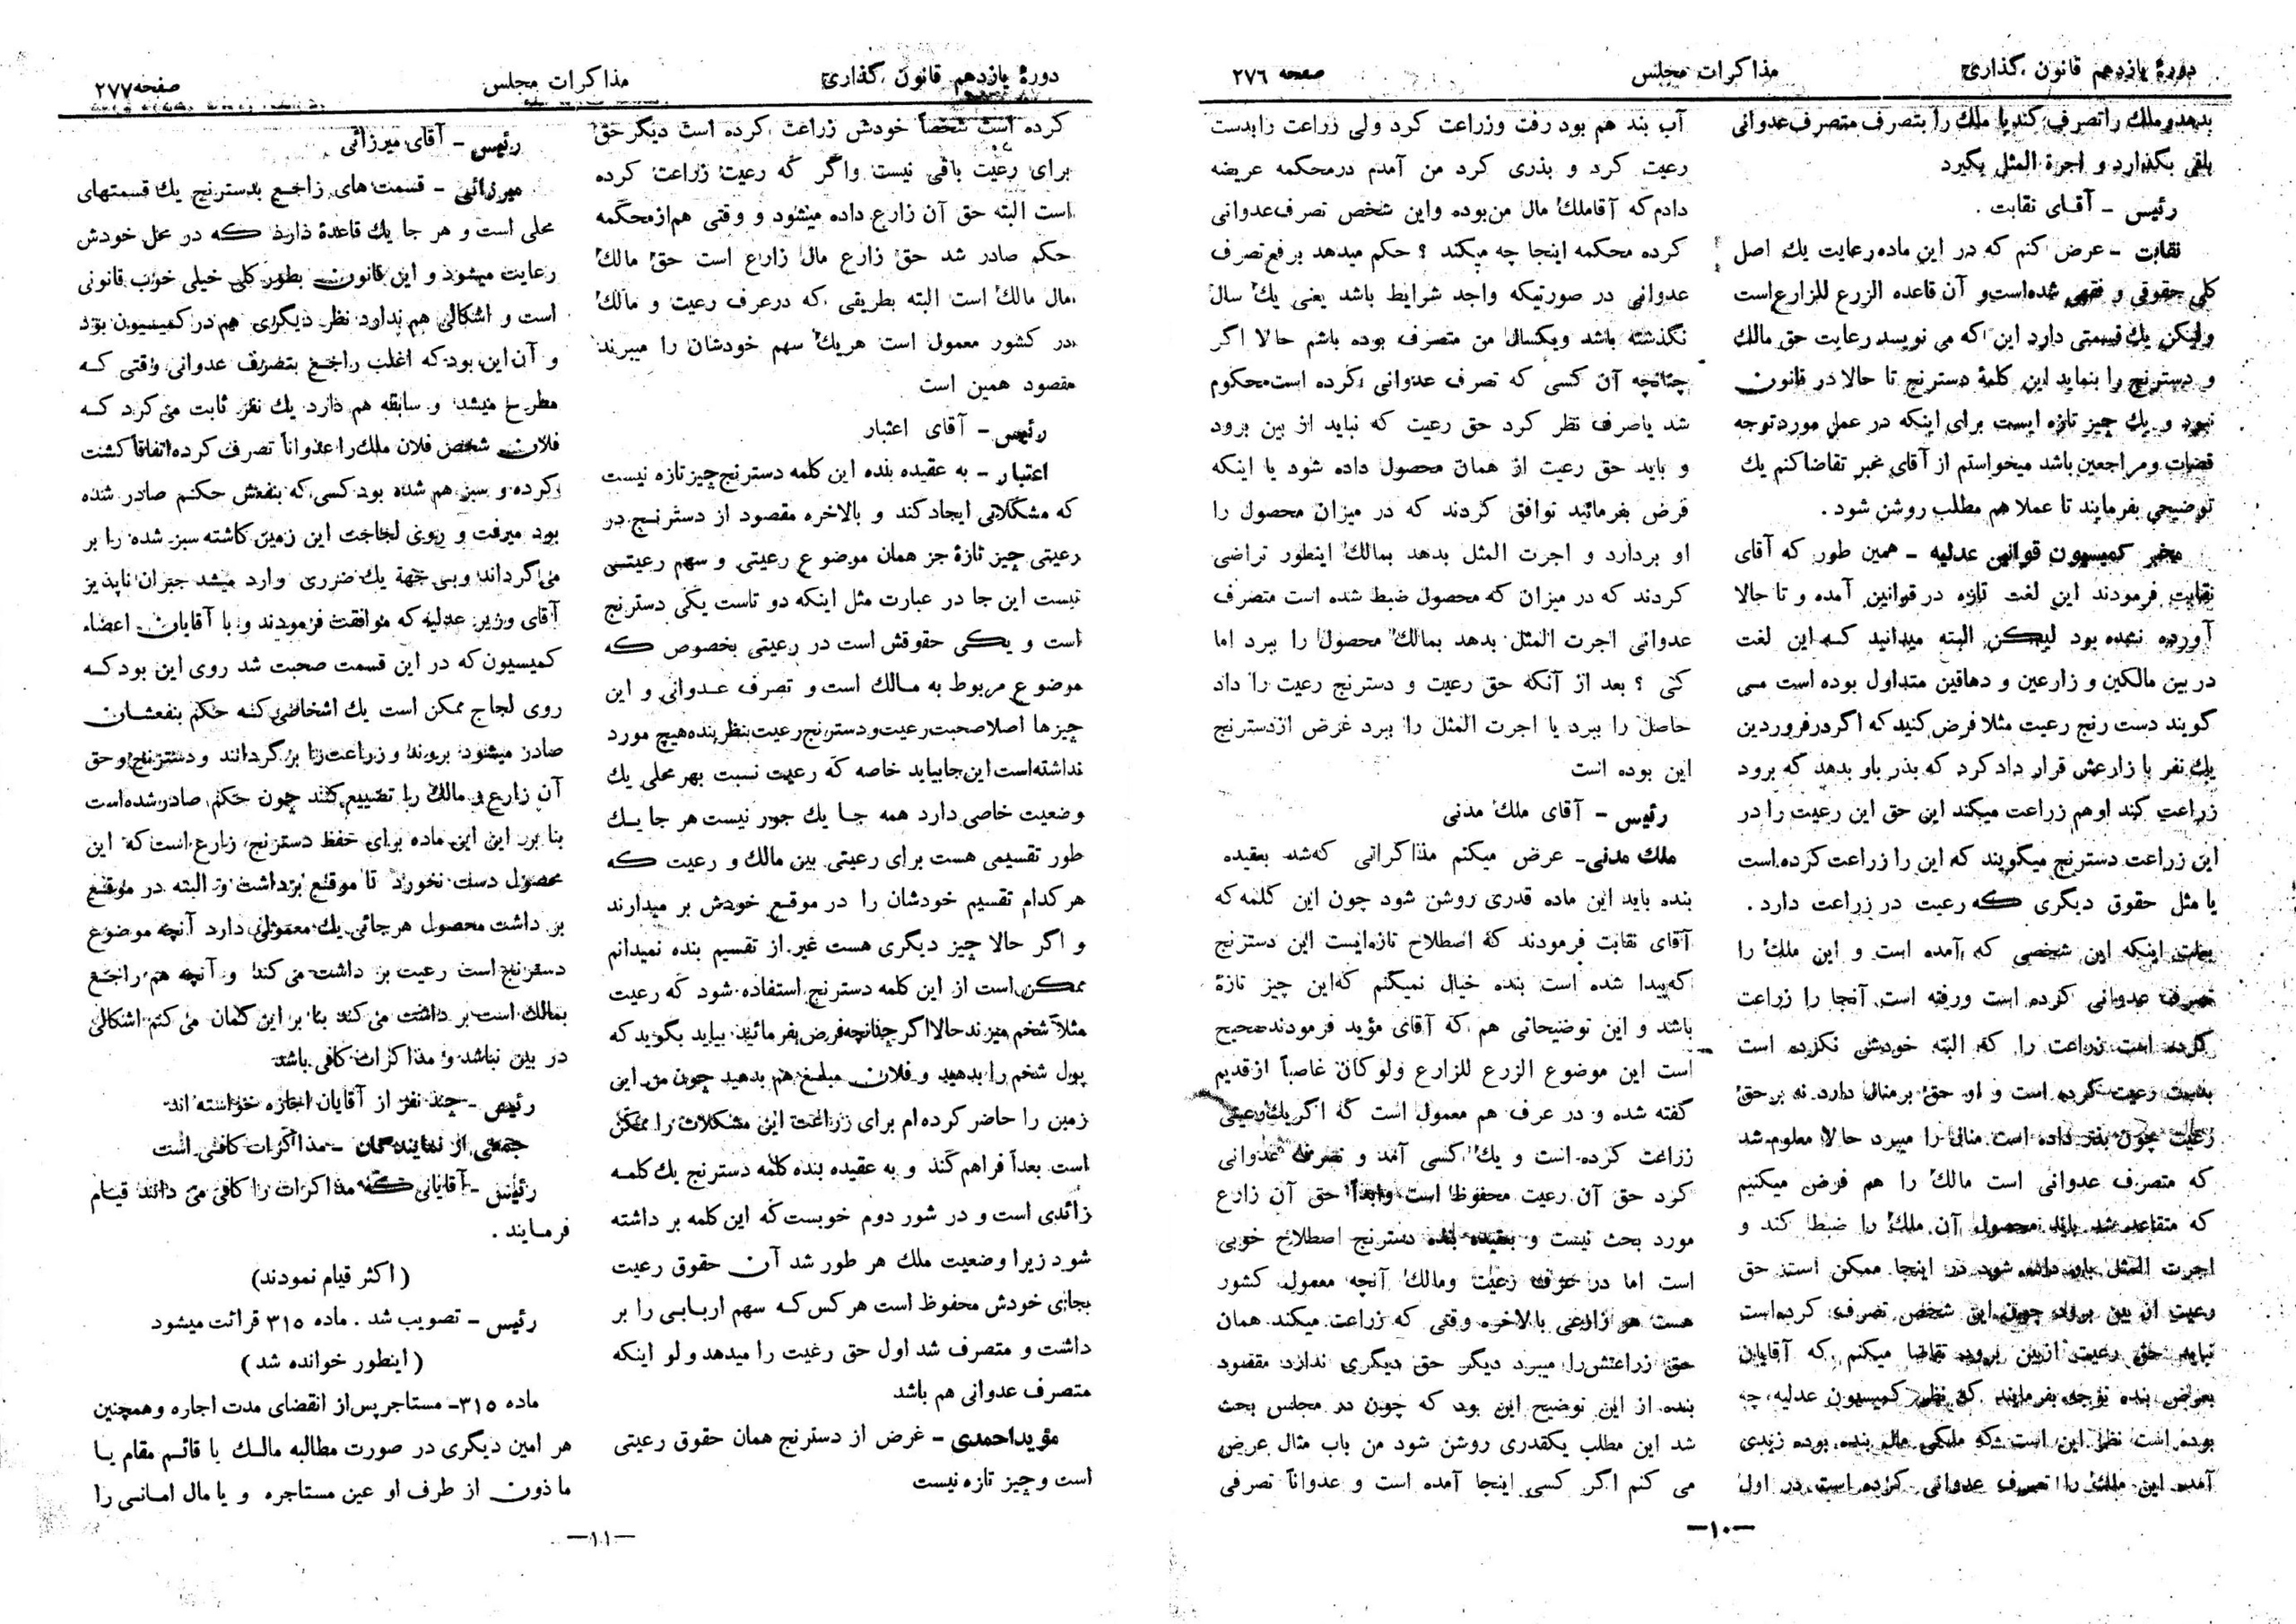 دورهٔ یازدهم قانون گذاری
مذاکرات مجلس
صفحه ۲۷۶
بدهدو ملك را تصرف کند یا ملك را بتصرف متصرف عدوانی
باقی بگذارد و اجرة المثل بگیرد
رئیس – آقای نقابت .
نقابت – عرض کنم که در این ماده رعایت یك اصل
کلی حقوقی و فقهی شده‌است و آن قاعده الزرع للزارع است
ولیکن یك قسمتی دارد این که می نویسد رعایت حق مالك
و دسترنج را بنماید این کلمهٔ دسترنج تا حالا در قانون
نبود و یك چیز تازه ایست برای اینکه در عمل مورد توجه
قضات و مراجعین باشد میخواستم از آقای مخبر تقاضا کنم یك
توضیحی بفرمایند تا عملا هم مطلب روشن شود .
مخبر کمیسیون قوانین عدلیه – همین طور که آقای
نقابت فرمودند این لغت تازه در قوانین آمده و تا حالا
آورده نشده بود لیکن البته میدانید که این لغت
در بین مالکین و زارعین و دهاقین متداول بوده است می
گویند دست رنج رعیت مثلا فرض کنید که اگر در فروردین
یك نفر با زارعش قرار داد کرد که بذر باو بدهد که برود
زراعت کند او هم زراعت میکند این حق این رعیت را در
این زراعت دسترنج میگویند که این را زراعت کرده است
یا مثل حقوق دیگری که رعیت در زراعت دارد .
اینکه این شخصی که آمده است و این ملك را
تصرف عدوانی کرده است و رفته است آنجا را زراعت
کرده است زراعت را که البته خودش نکرده است
رعیت کرده است و او حق بر منال دارد نه بر حق
رعیت چون بذر داده است منال را میبرد حالا معلوم شد
که متصرف عدوانی است مالك را هم فرض میکنیم
که متقاعد شد باید محصول آن ملك را ضبط کند و
اجرت المثل باو داده شود در اینجا ممکن است حق
رعیت از بین برود چون این شخص تصرف کرده است
نباید حق رعیت از بین برود تقاضا میکنم که آقایان
بعرض بنده توجه بفرمایند که نظر کمیسیون عدلیه چه
بوده است نظر این است که ملکی مال بنده بوده زیدی
آمد این ملك را تصرف عدوانی کرده است در اول
آب بند هم بود رفت و زراعت کرد ولی زراعت را بدست
رعیت کرد و بذری کرد من آمدم در محکمه عریضه
دادم که آقا ملك مال من بوده و این شخص تصرف عدوانی
کرده محکمه اینجا چه میکند ؟ حکم میدهد برفع تصرف
عدوانی در صورتیکه واجد شرایط باشد یعنی یك سال
نگذشته باشد و یکسال من متصرف بوده باشم حالا اگر
چنانچه آن کسی که تصرف عدوانی کرده است محکوم
شد یا صرف نظر کرد حق رعیت که نباید از بین برود
و باید حق رعیت از همان محصول داده شود یا اینکه
فرض بفرمائید توافق کردند که در میزان محصول را
او بردارد و اجرت المثل بدهد بمالك اینطور تراضی
کردند که در میزان که محصول ضبط شده است متصرف
عدوانی اجرت المثل بدهد بمالك محصول را ببرد اما
کی ؟ بعد از آنکه حق رعیت و دسترنج رعیت را داد
حاصل را ببرد یا اجرت المثل را ببرد غرض از دسترنج
این بوده است
رئیس – آقای ملك مدنی
ملك مدنی – عرض میکنم مذاکراتی که شد بعقیده
بنده باید این ماده قدری روشن شود چون این کلمه که
آقای نقابت فرمودند که اصطلاح تازه‌ایست این دسترنج
که پیدا شده است بنده خیال نمیکنم که این چیز تازهٔ
باشد و این توضیحاتی هم که آقای مؤید فرمودند صحیح
است این موضوع الزرع للزارع ولو کان غاصباً از قدیم
گفته شده و در عرف هم معمول است که اگر یك رعیتی
زراعت کرده است و یك کسی آمد و تصرف عدوانی
کرد حق آن رعیت محفوظ است وابداً حق آن زارع
مورد بحث نیست و بعقیده بنده دسترنج اصطلاح خوبی
است اما در عرف رعیت و مالك آنچه معمول کشور
هست هر زارعی بالاخره وقتی که زراعت میکند همان
حق زراعتش را میبرد دیگر حق دیگری ندارد مقصود
بنده از این توضیح این بود که چون در مجلس بحث
شد این مطلب یکقدری روشن شود من باب مثال عرض
می کنم اگر کسی اینجا آمده است و عدواناً تصرفی
–۱۰–
دورهٔ یازدهم قانون گذاری
مذاکرات مجلس
صفحه ۲۷۷
کرده است شخصاً خودش زراعت کرده است دیگر حق
برای رعیت باقی نیست واگر که رعیت زراعت کرده
است البته حق آن زارع داده میشود و وقتی هم از محکمه
حکم صادر شد حق زارع مال زارع است حق مالك
مال مالك است البته بطریقی که در عرف رعیت و مالك
در کشور معمول است هریك سهم خودشان را میبرند
مقصود همین است
رئیس – آقای اعتبار
اعتبار – به عقیده بنده این کلمه دسترنج چیز تازه نیست
که مشکلاتی ایجاد کند و بالاخره مقصود از دسترنج در
رعیتی چیز تازهٔ جز همان موضوع رعیتی و سهم رعیتی
نیست این جا در عبارت مثل اینکه دو تاست یکی دسترنج
است و یکی حقوقش است در رعیتی بخصوص که
موضوع مربوط به مالك است و تصرف عدوانی و این
چیزها اصلا صحبت رعیت و دسترنج رعیت بنظر بنده هیچ مورد
نداشته‌است این جا بیاید خاصه که رعیت نسبت بهر محلی یك
وضعیت خاصی دارد همه جا یك جور نیست هر جا یك
طور تقسیمی هست برای رعیتی بین مالك و رعیت که
هر کدام تقسیم خودشان را در موقع خودش بر میدارند
و اگر حالا چیز دیگری هست غیر از تقسیم بنده نمیدانم
ممکن است از این کلمه دسترنج استفاده شود که رعیت
مثلاً شخم میزند حالا اگر چنانچه فرض بفرمائید بیاید بگوید که
پول شخم را بدهید و فلان مبلغ هم بدهید چون من این
زمین را حاضر کرده ام برای زراعت این مشکلات را ممکن
است بعداً فراهم کند و به عقیده بنده کلمه دسترنج یك کلمه
زائدی است و در شور دوم خوبست که این کلمه بر داشته
شود زیرا وضعیت ملك هر طور شد آن حقوق رعیت
بجای خودش محفوظ است هر کس که سهم اربابی را بر
داشت و متصرف شد اول حق رعیت را میدهد و لو اینکه
متصرف عدوانی هم باشد
مؤید احمدی – غرض از دسترنج همان حقوق رعیتی
است و چیز تازه نیست
رئیس – آقای میرزائی
میرزائی – قسمت های راجع بدسترنج یك قسمتهای
محلی است و هر جا یك قاعدهٔ دارد که در محل خودش
رعایت میشود و این قانون بطور کلی خیلی خوب قانونی
است و اشکالی هم ندارد نظر دیگری هم در کمیسیون بود
و آن این بود که اغلب راجع بتصرف عدوانی وقتی که
مطرح میشد و سابقه هم دارد یك نفر ثابت می کرد که
فلان شخص فلان ملك را عدواناً تصرف کرده اتفاقاً کشت
کرده و سبز هم شده بود کسی که بنفعش حکم صادر شده
بود میرفت و روی لجاجت این زمین کاشته سبز شده را بر
می گرداند وبی جهة یك ضرری وارد میشد جبران ناپذیر
آقای وزیر عدلیه که موافقت فرمودند و با آقایان اعضاء
کمیسیون که در این قسمت صحبت شد روی این بود که
روی لجاج ممکن است یك اشخاصی که حکم بنفعشان
صادر میشود بروند و زراعت را بر گردانند و دسترنج و حق
آن زارع و مالك را تضییع کنند چون حکم صادر شده است
بنا بر این این ماده برای حفظ دسترنج زارع است که این
محصول دست نخورد تا موقع برداشت و البته در موقع
بر داشت محصول هر جائی یك معمولی دارد آنچه موضوع
دسترنج است رعیت بر داشت می کند و آنچه هم راجع
بمالك است بر داشت می کند بنا بر این گمان می کنم اشکالی
در بین نباشد و مذاکرات کافی باشد
رئیس – چند نفر از آقایان اجازه خواسته اند
جمعی از نمایندگان – مذاکرات کافی است
رئیس – آقایانی که مذاکرات را کافی می دانند قیام
فرمایند .
(اکثر قیام نمودند)
رئیس – تصویب شد . ماده ۳۱۵ قرائت میشود
(اینطور خوانده شد)
ماده ۳۱۵– مستاجر پس از انقضای مدت اجاره و همچنین
هر امین دیگری در صورت مطالبه مالك یا قائم مقام یا
ماذون از طرف او عین مستاجره و یا مال امانی را
–۱۱–